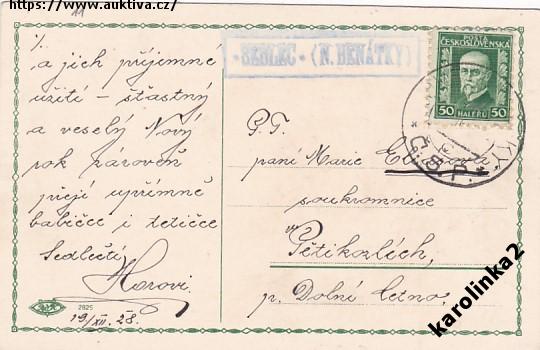 https://www.auktiva.cz/
11
a jich příjemné
užití – šťastný
a veselý Nový
rok zároveň
přejí upřímně
babičce i tetičce
Sedlečtí
Horovi.
2825
19/XII. 28.
SEDLEC (N. BENÁTKY)
POŠTA
ČESKOSLOVENSKÁ
50 HALÉŘŮ 50
P. T.
paní Marie
soukromnice
v
Pětikozlích,
p. Dolní Cetno.
karolinka2